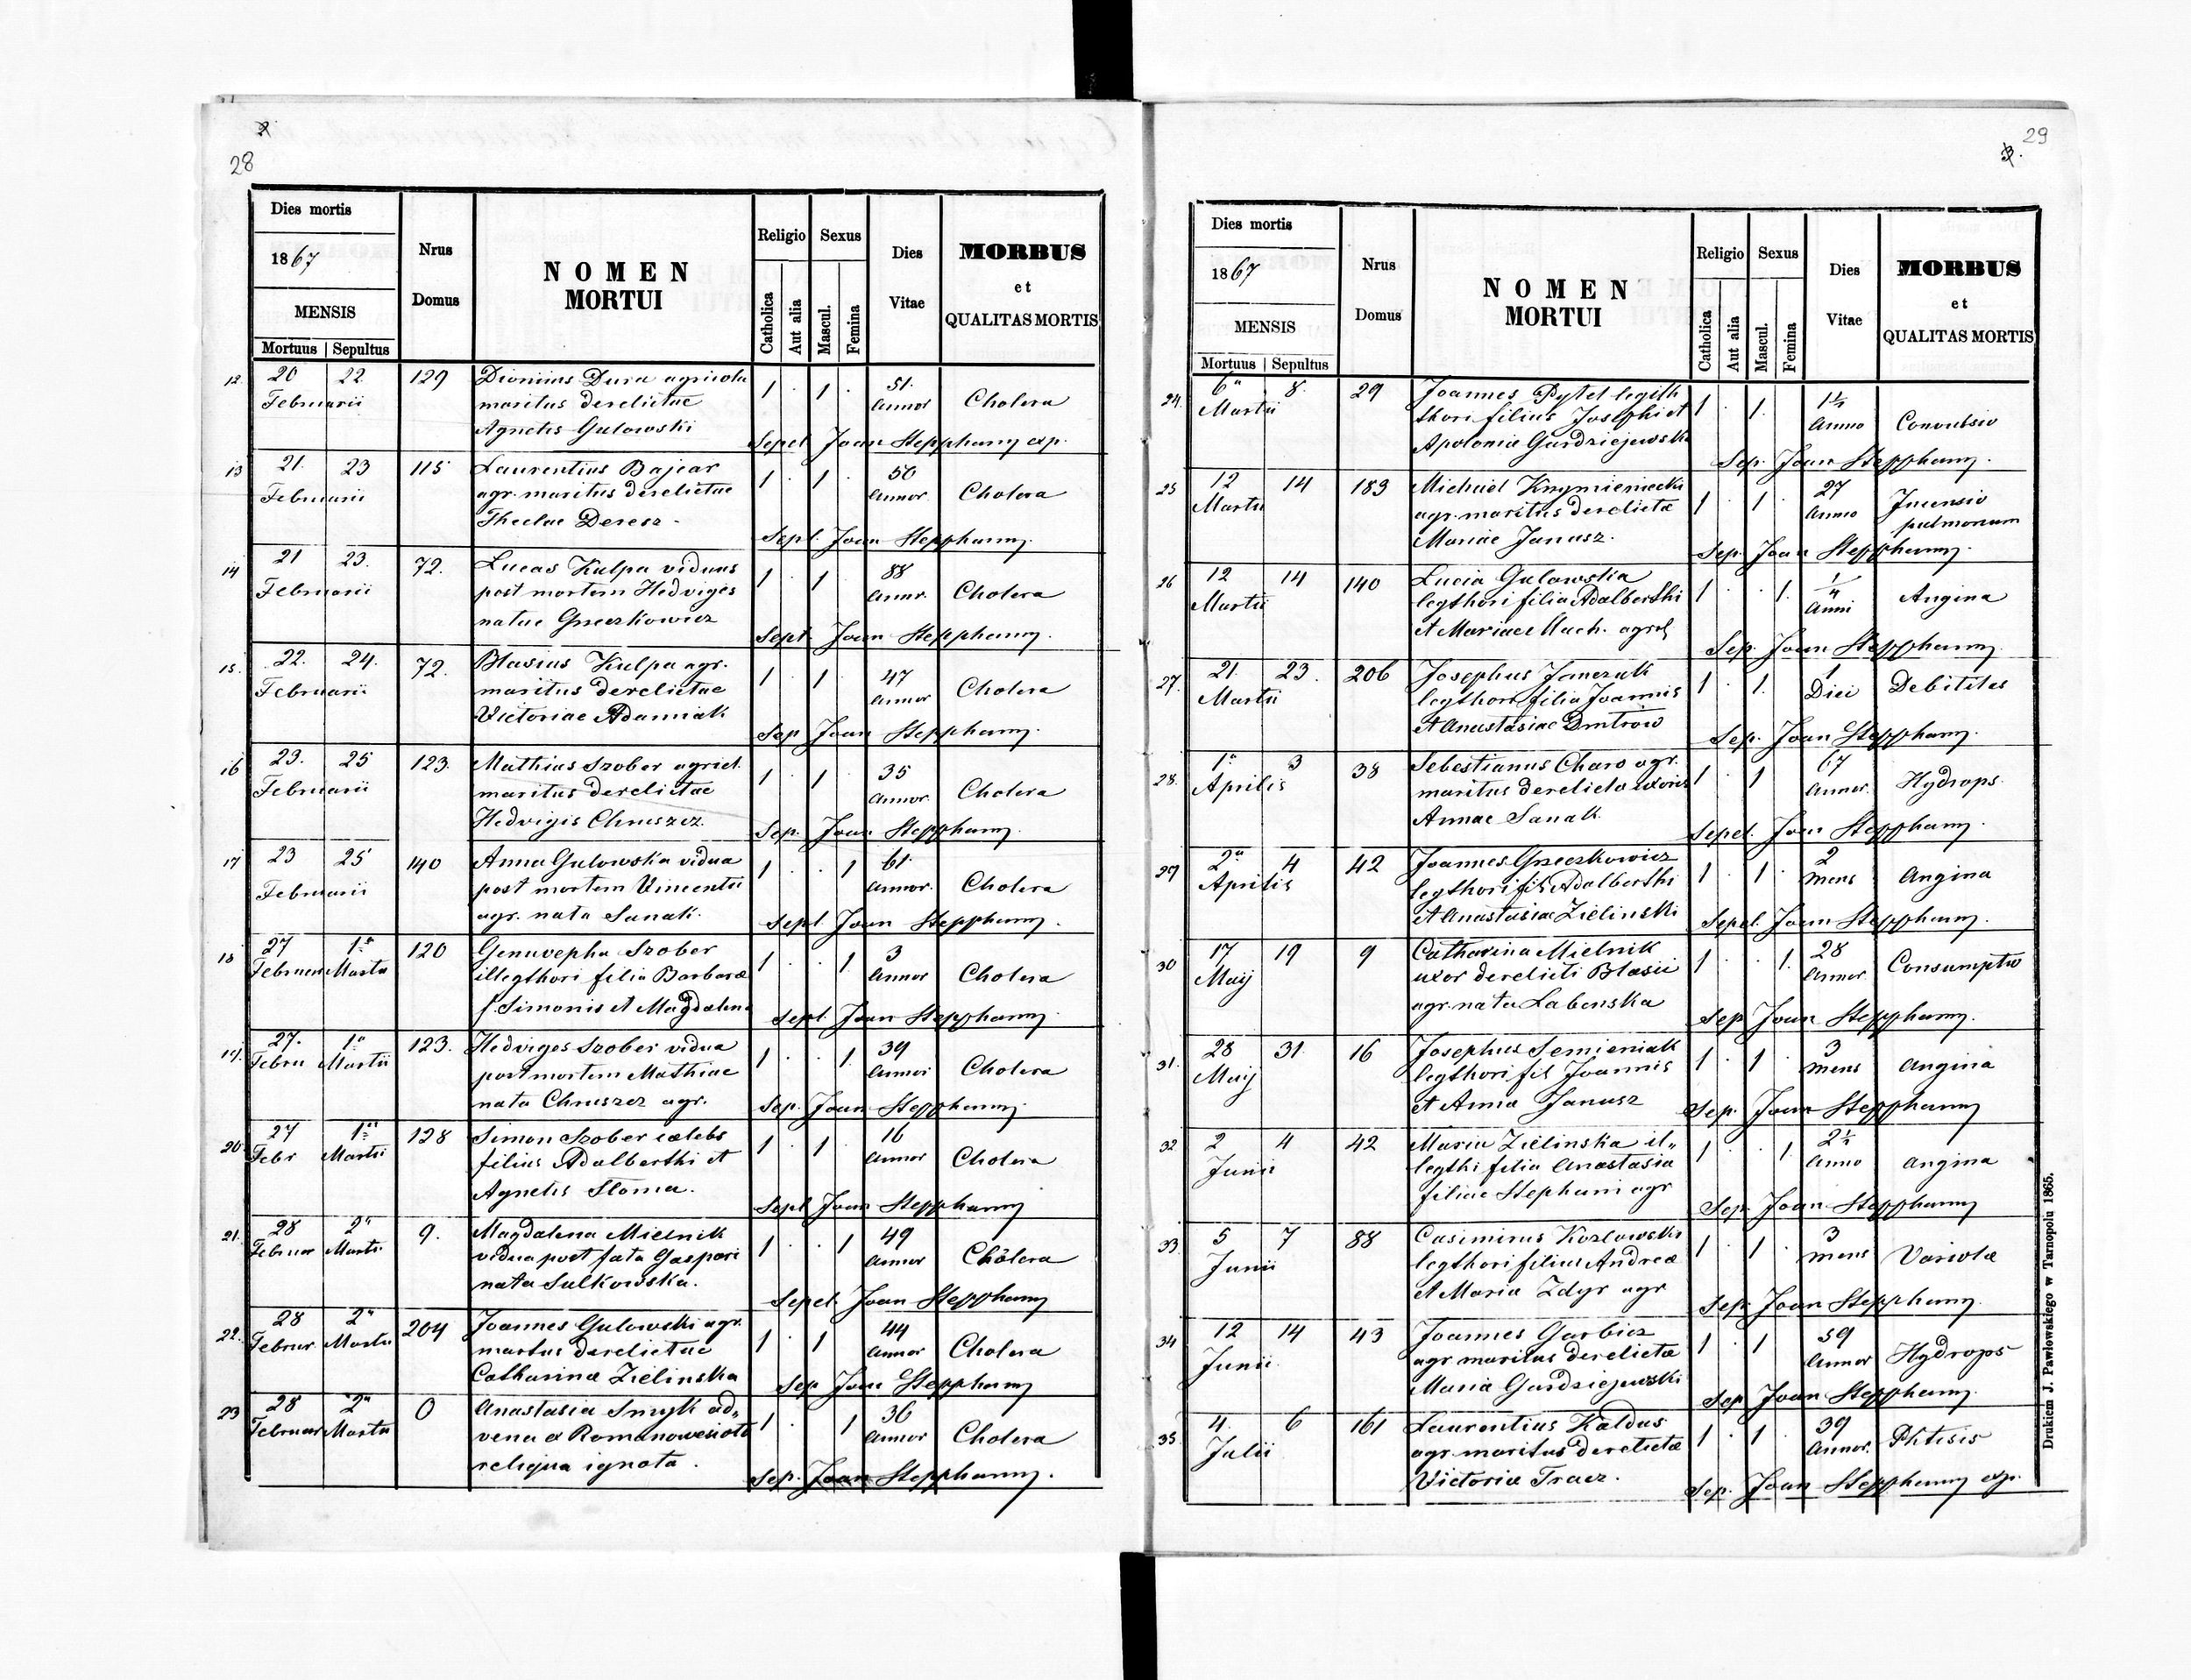 28
Dies mortis
1867
MENSIS
Mortuus | Sepultus
Nrus Domus
NOMEN MORTUI
Religio
Catholica
Aut alia
Sexus
Mascul.
Femina
Dies Vitae
MORBUS et QUALITAS MORTIS
12 20 22 129 Dionisius Dura agricola 1 . 1 . 51.
Februarii maritus derelictae Annor Cholera
Agnetis Gulowski
Sepel. Joan Stepphany exp.
13 21. 23 115 Laurentius Bajcar 1 . 1 . 50
Februarii agr. maritus derelictae Annor. Cholera
Theclae Deresz.
Sepl. Joan Stepphany.
14 21 23. 72. Lucas Kulpa viduus 1 . 1 88
Februarii post mortem Hedviges Annr. Cholera
natae Grzeczkowicz
Sept. Joan Stepphany.
15. 22. 24. 72. Blasius Kulpa agr. 1 . 1 47
Februarii maritus derelictae Annor Cholera
Victoriae Adamiak
Sep Joan Stepphany.
16 23. 25 123. Mathias Szober agricl. 1 . 1 35
Februarii maritus derelictae Annor. Cholera
Hedvigis Chruszcz.
Sep. Joan Stepphany.
17 23 25 140 Anna Gulowska vidua 1 . . 1 61.
Februarii post mortem Vincentii Annor. Cholera
agr. nata Sanak.
Sepl. Joan Stepphany.
18 27 1a 120 Genuvepha Szober 1 . . 1 3
Februar Martii illegthori filia Barbarae Annor Cholera
f. Simonis et Magdalena
Sepl. Joan Stepphany.
19. 27. 1a 123. Hedviges Szober vidua 1 . . 1 39
Febru Martii post mortem Mathiae Annor Cholera
nata Chruszcz agr.
Sep. Joan Stepphany.
20 27 1a 128 Simon Szober caelebs 1 . 1 16
Febr Martii filius Adalberthi et Annor Cholera
Agnetis Stoma.
Sepl Joan Stepphany
21. 28 2a 9. Magdalena Mielnik 1 . . 1 49
Februar Martii vidua post fata Gaspari Annor Cholera
nata Sulkowska.
Sepel. Joan Stepphany
22. 28 2a 204 Joannes Gulowski agr. 1 . 1 44
Februar Martii martus derelictae Annor Cholera
Catharinae Zielinska
Sep Joan Stepphany
23 28 2a 0 Anastasia Smyk ad„ 1 . . 1 36
Februar Martii vena ex Annor Cholera
reliqua ignota.
Sep. Joan Stepphany.
29
3.
Dies mortis
1867
MENSIS
Mortuus | Sepultus
Nrus Domus
NOMEN MORTUI
Religio
Catholica
Aut alia
Sexus
Mascul.
Femina
Dies Vitae
MORBUS et QUALITAS MORTIS
24. 6a 8. 29 Joannes Pytel legith 1 . 1. 1½
Martii thori filius Josephi et Anno Convulsio
Apolonia Gardziejewski
Sep. Joan Stepphany.
25 12 14 183 Michael Krzymieniecki 1 . 1 . 27
Martii agr. maritus derelictae Anno Incensio
Mariae Janusz. pulmonum
Sep. Joan Stepphany.
26 12 14 140 Lucia Gulowska 1 . . 1. ¼
Martii legthori filia Adalberthi Anni Angina
et Mariae Mach. agrcl
Sep. Joan Stepphany
27. 21. 23. 206 Josephus Janczuk 1 . 1. 1
Martii legthori filia Joannis Diei Debilitas
et Anastasiae Dmitrow
Sep. Joan Stepphany.
28. 1a 3 38 Sebestianus Charo agr. 1 . 1 67
Aprilis maritus derelicto uxoris Annor. Hydrops.
Annae Sanak.
Sepel. Joan Stepphany.
29 2a 4 42 Joannes Grzeczkowicz 1 . 1 . 2
Aprilis legthori fil Adalberthi mens Angina
et Anastasiae Zielinski
Sepel. Joan Stepphany.
30 17 19 9 Catharina Mielnik 1 . . 1. 28
Maij uxor derelicti Blasii Annor. Consumptio
agr. nata Labenska
Sep Joan Stepphany.
31. 28 31. 16 Josephus Semieniak 1 . 1 . 3
Maij legthori fil Joannis mens Angina
et Anna Janusz
Sep. Joan Stepphany
32 2 4 42 Maria Zielinska il„ 1 . . 1. 2½
Junii legthi filia Anastasia Anno Angina
filiae Stephani agr
Sep. Joan Stepphany
33. 5 7 88 Casimirus Kozlowski 1 . 1 . 3
Junii legthori filius Andreae mens Variolae
et Maria Zdyr agr
Sep. Joan Stepphany.
34 12 14 43 Joannes Garbicz 1 . 1 59
Junii agr maritus derelictae Annor Hydrops
Maria Gardziejewski
Sep. Joan Stepphany.
35. 4. 6 161 Laurentius Kaldus 1 . 1 . 39
Julii agr. maritus derelictae Annor. Phtisis
Victoriae Tracz.
Sep. Joan Stepphany exp.
Drukiem J. Pawłowskiego w Tarnopolu 1865.